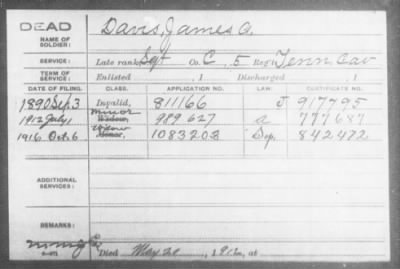 DEAD
NAME OF SOLDIER: Davis, James A.
SERVICE: Late rank, Sgt Co. C, 5 Reg't Tenn Cav
TERM OF SERVICE: Enlisted , 1 Discharged , 1
DATE OF FILING. CLASS. APPLICATION NO. LAW. CERTIFICATE NO.
1890 Sep. 3 Invalid, 811166 J 917795
Minor
1912 July 1 Widow, 989627 a 777687
Widow
1916 Oct. 6 Minor, 1083203 Sep. 842472
ADDITIONAL SERVICES:
REMARKS:
Died May 20, 1912, at